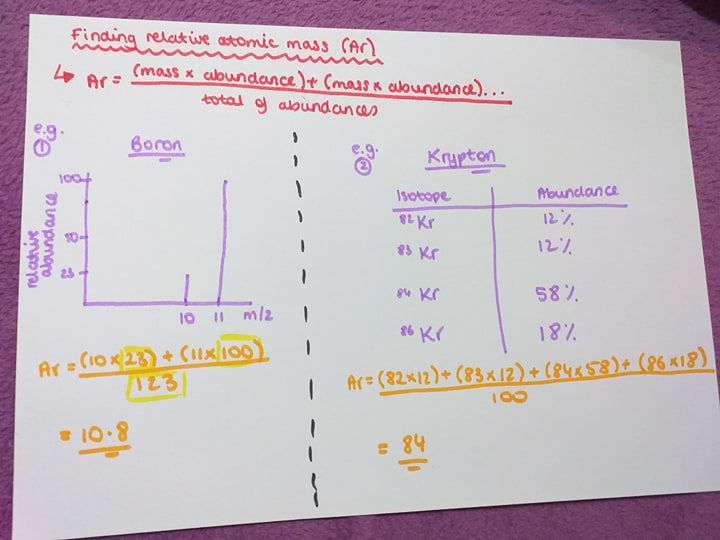 Finding relative atomic mass (Ar)
↳ Ar = (mass x abundance) + (mass x abundance)...
total of abundances
e.g. ①
Boron
relative abundance
100
50
23
10 11 m/z
Ar = (10 x 23) + (11 x 100)
123
= 10.8
e.g. ②
Krypton
Isotope Abundance
⁸²Kr 12%
⁸³Kr 12%
⁸⁴Kr 58%
⁸⁶Kr 18%
Ar = (82x12) + (83x12) + (84x58) + (86x18)
100
= 84